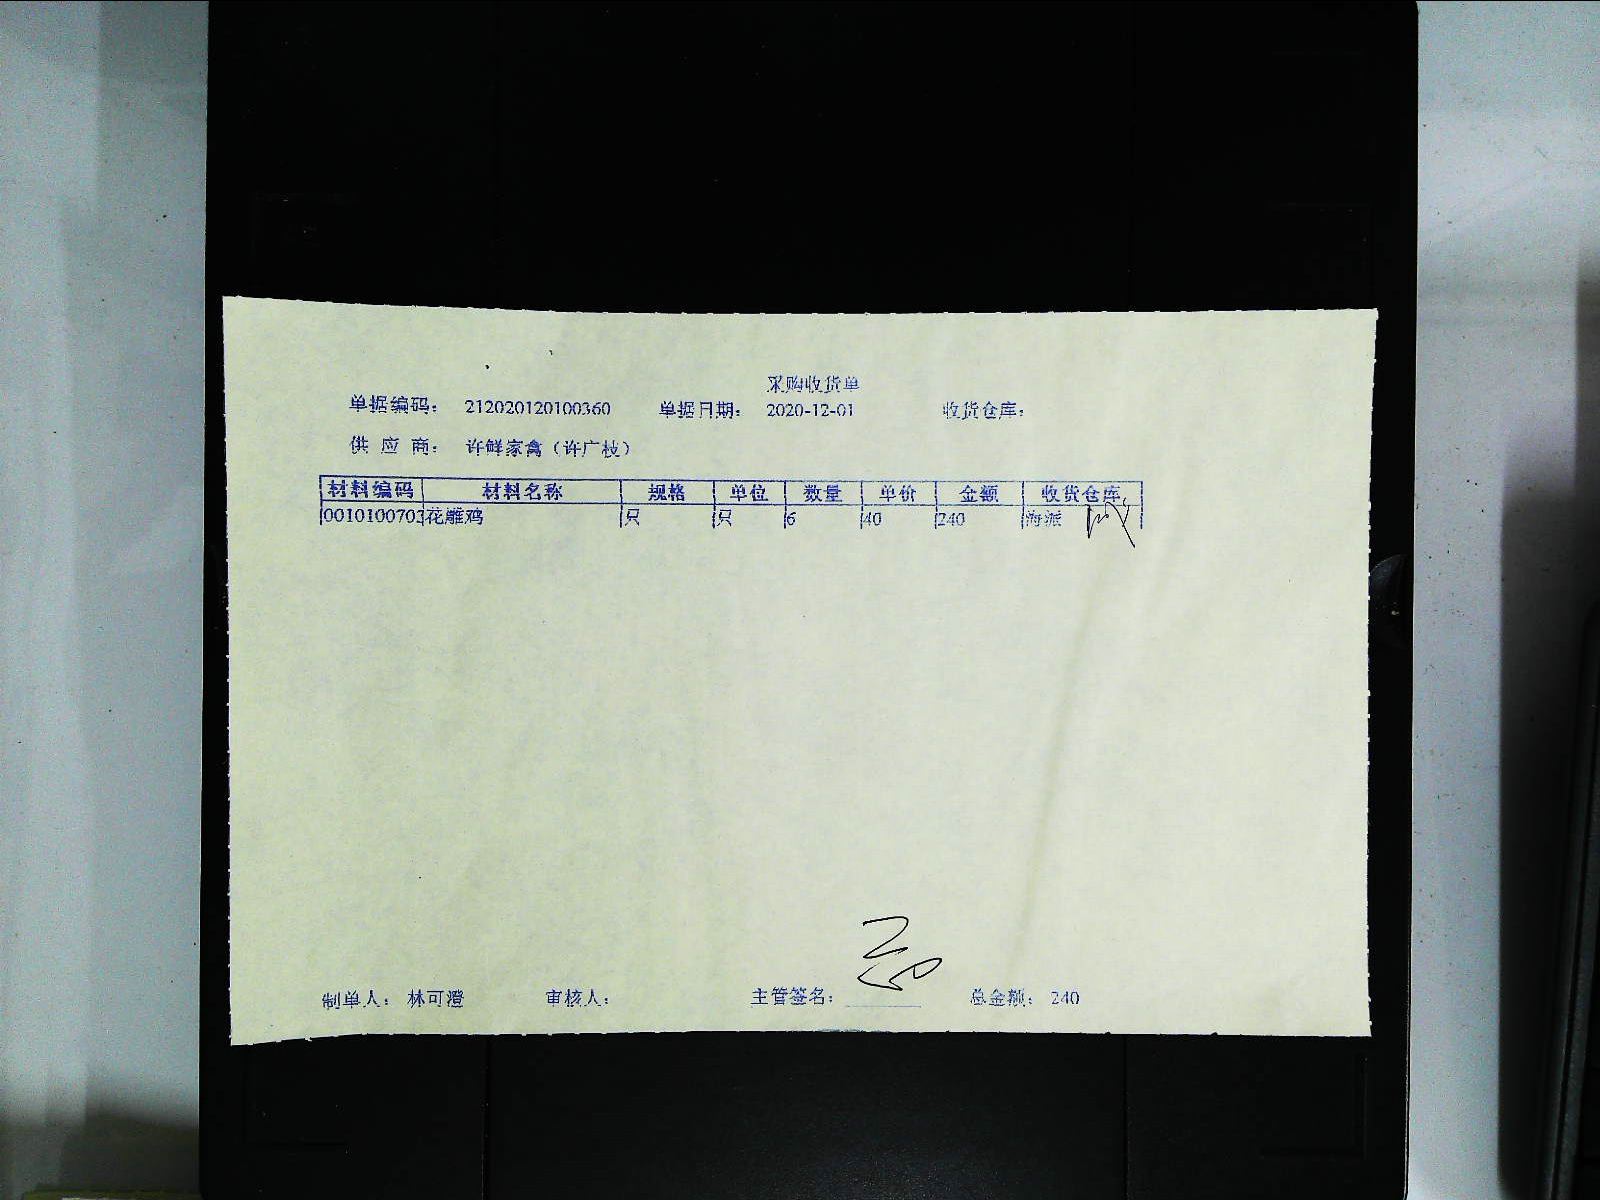 采购收货单
单据编码： 212020120100360 单据日期： 2020-12-01 收货仓库：
供 应 商： 许鲜家禽（许广枝）
材料编码 材料名称 规格 单位 数量 单价 金额 收货仓库
0010100703 花雕鸡 只 只 6 40 240 海派
制单人： 林可澄 审核人： 主管签名： 总金额： 240